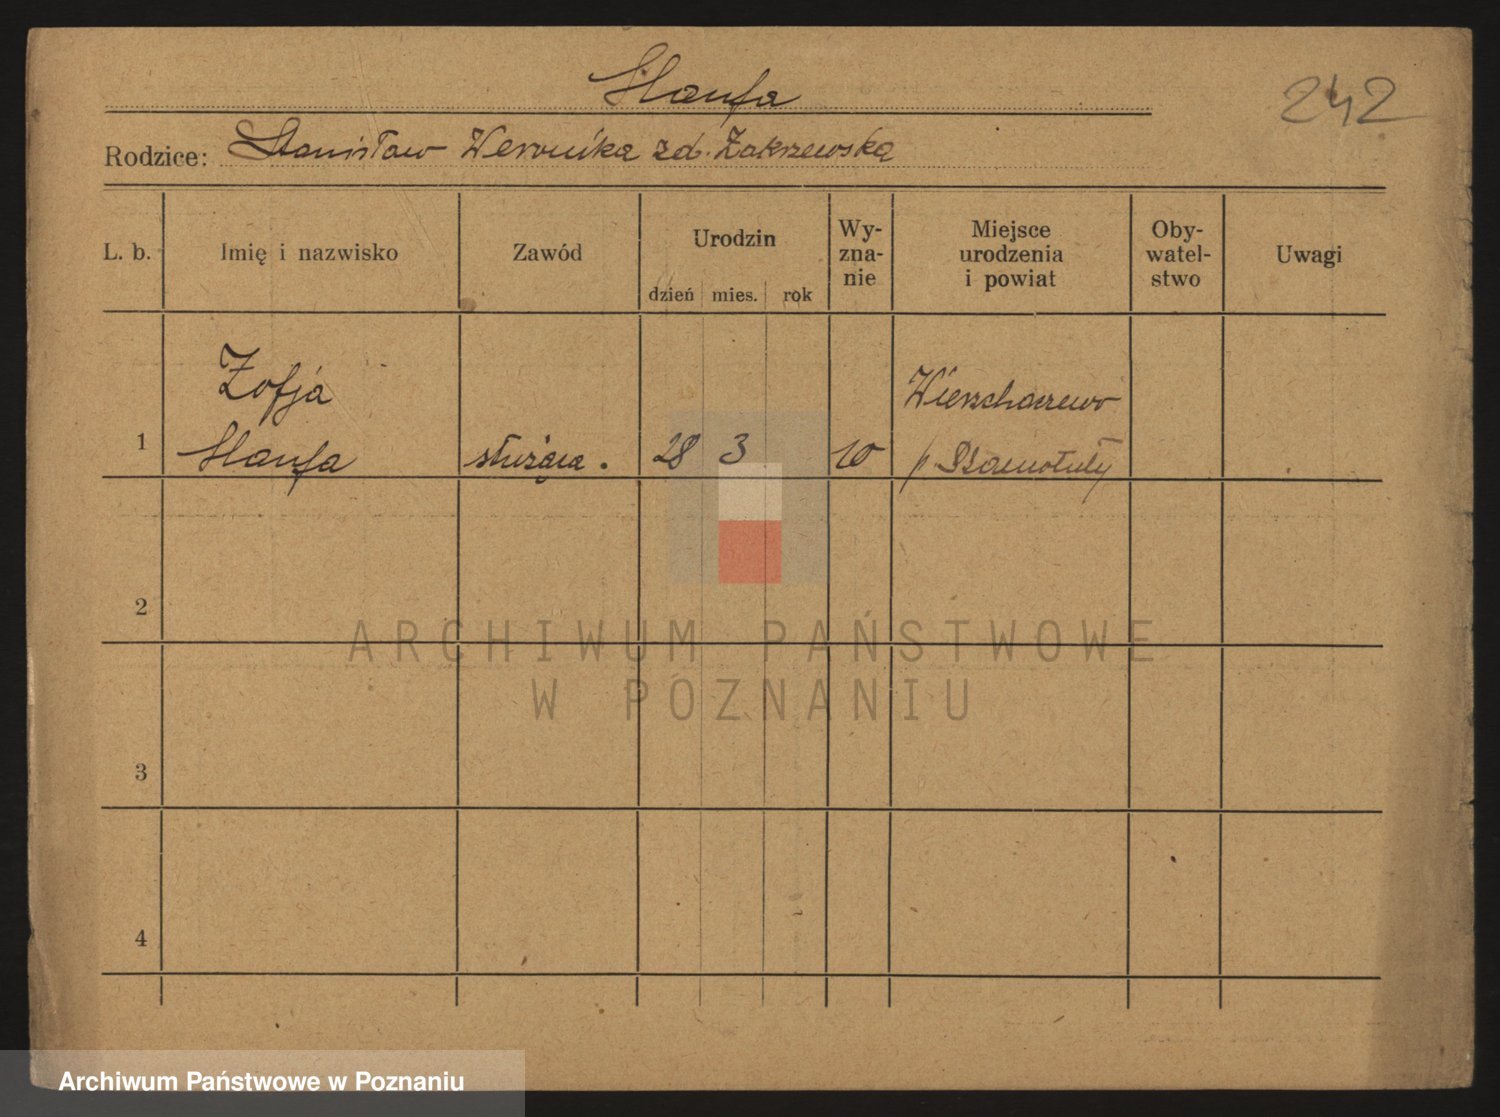 Hanfa
242
Rodzice: Stanisław Weronika zd. Zakrzewską
L. b.
Imię i nazwisko
Zawód
Urodzin
dzień mies. rok
Wy-
zna-
nie
Miejsce
urodzenia
i powiat
Oby-
watel-
stwo
Uwagi
1
Zofja
Hanfa
służąca.
28 3
Wierzchaczewo
p Szamotuły
2
3
4
ARCHIWUM PAŃSTWOWE
W POZNANIU
Archiwum Państwowe w Poznaniu